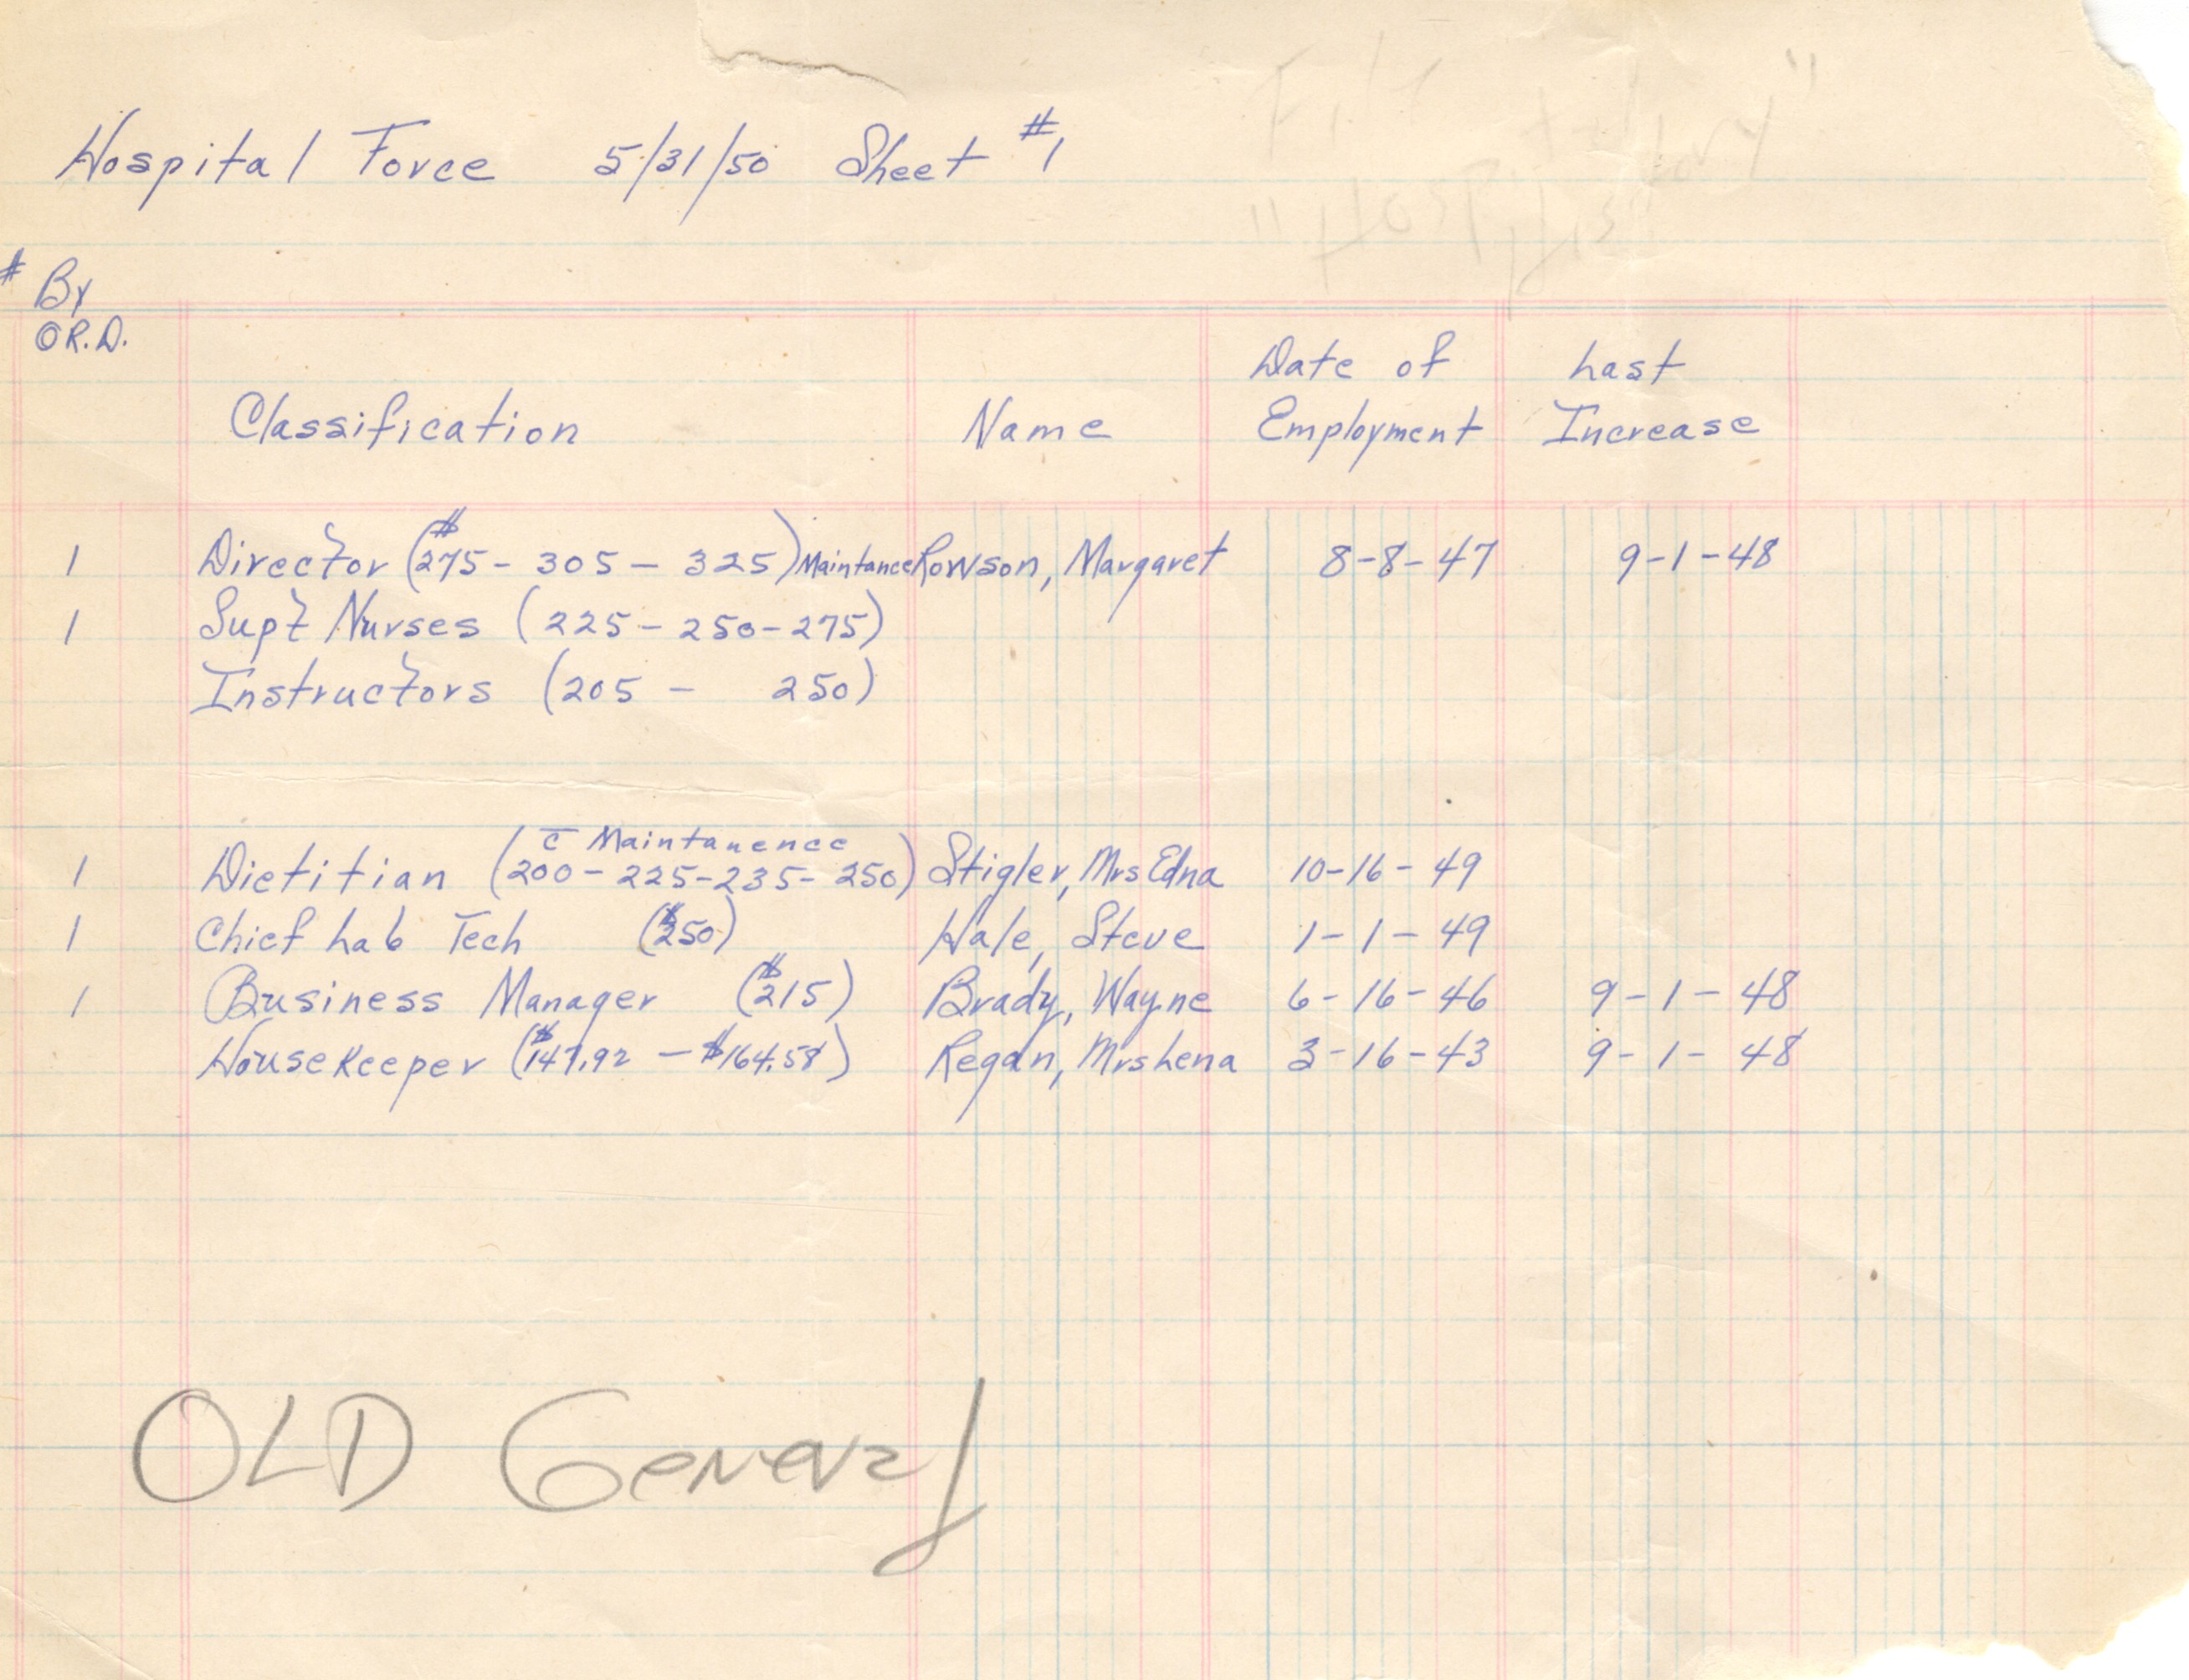 Hospital Force 5/31/50 Sheet #1
# By
O R.D.
Classification Name Date of Employment Last Increase
1 Director ($275 - 305 - 325) Maintance Rowson, Margaret 8-8-47 9-1-48
1 Supt Nurses (225 - 250 - 275)
Instructors (205 - 250)
c̄ Maintanence
1 Dietitian (200 - 225 - 235 - 250) Stigler, Mrs Edna 10-16-49
1 Chief Lab Tech ($250) Hale, Steve 1-1-49
1 Business Manager ($215) Brady, Wayne 6-16-46 9-1-48
Housekeeper ($147.92 - $164.58) Regan, Mrs Lena 3-16-43 9-1-48
OLD